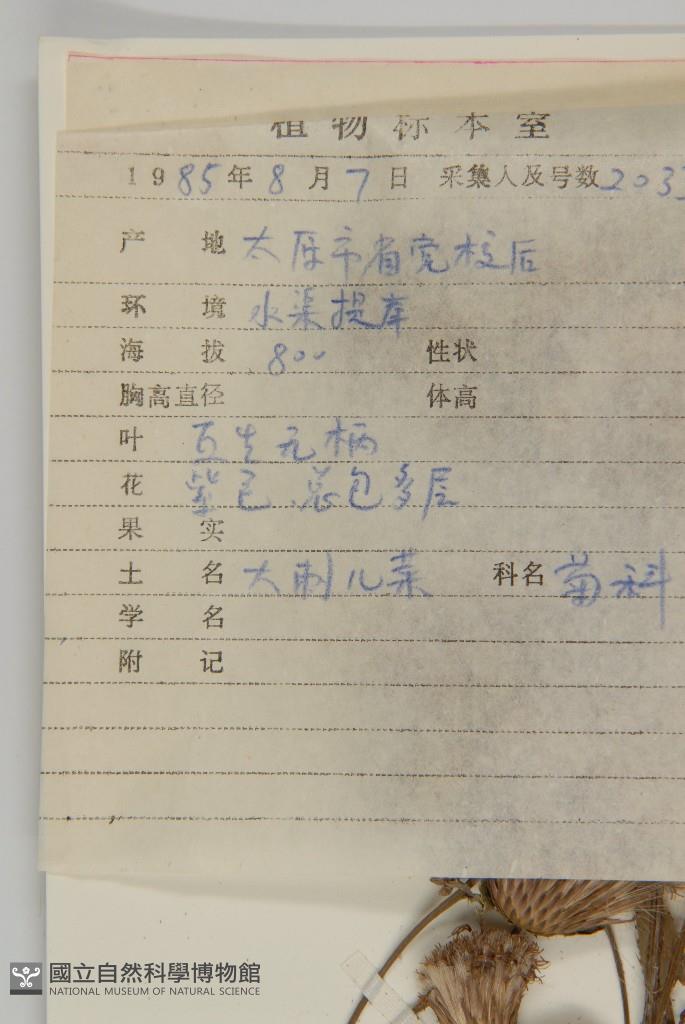 植物标本室
1985年8月7日 采集人及号数 203
产地 太原市省党校后
环境 水渠提岸
海拔 800 性状
胸高直径 体高
叶 互生无柄
花 紫色、总包多层
果实
土名 大刺儿菜 科名 菊科
学名
附记
國立自然科學博物館
NATIONAL MUSEUM OF NATURAL SCIENCE